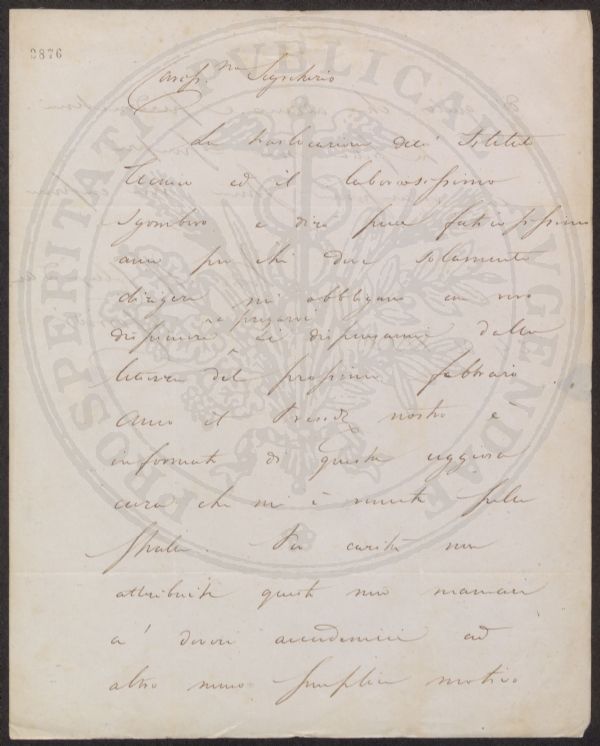 2876
Cariss.mo Segretario
La traslocazione dell' Istituto
Tecnico ed il laboriosissimo
sgombero e dirò pure faticosissimo
anco per chi deve solamente
dirigere mi obbligano con vero
dispiacere a pregarvi di dispensarmi dalla
lettura del prossimo febbraio
Anco il Presid.e nostro è
informato di questa uggiosa
cura che mi è venuta sulle
spalle. Per carità non
attribuite questo mio mancare
a' doveri accademici ad
altro meno semplice motivo
PROSPERITATI PUBLICAE AUGENDAE